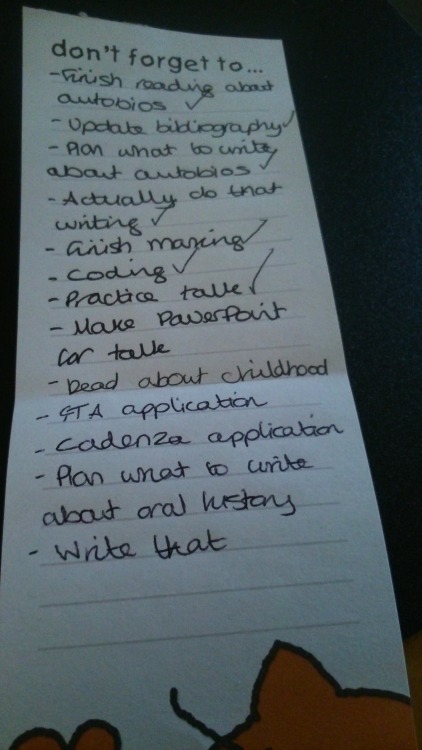 don't forget to...
- Finish reading about
autobios ✓
- Update bibliography ✓
- Plan what to write
about autobios ✓
- Actually do that
writing ✓
- Finish marking ✓
- Coding ✓
- Practice talk ✓
- Make PowerPoint
for talk
- Read about childhood
- GTA application
- Cadenza application
- Plan what to write
about oral history
- Write that